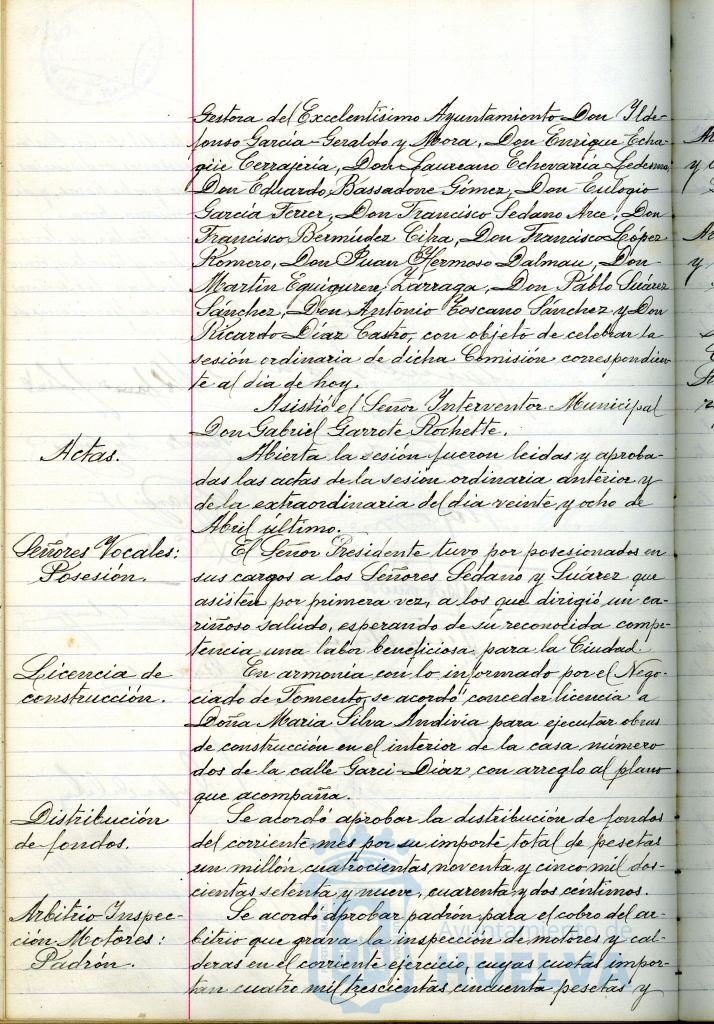 Gestora del Excelentísimo Ayuntamiento Don Ilde-
fonso García-Geraldo y Mora, Don Enrique Echa-
güe Cerrajería, Don Laureano Echevarría Ledesma,
Don Eduardo Bassadone Gómez, Don Eulogio
García Ferrer, Don Francisco Sedano Arce, Don
Francisco Bermúdez, Don Francisco López
Romero, Don Juan Hermoso Dalmau, Don
Martín Eguiguren y Zárraga, Don Pablo Suárez
Sánchez, Don Antonio Toscano Sánchez y Don
Ricardo Díaz Castro, con objeto de celebrar la
sesión ordinaria de dicha Comisión correspondien-
te al dia de hoy.
Asistió el Señor Interventor Municipal
Don Gabriel Garrote Rochette.
Actas.
Abierta la sesión fueron leidas y aproba-
das las actas de la sesion ordinaria anterior y
de la extraordinaria del dia veinte y ocho de
Abril último.
Señores Vocales:
Posesión.
El Señor Presidente tuvo por posesionados en
sus cargos a los Señores Sedano y Suárez que
asisten por primera vez, a los que dirigió un ca-
riñoso saludo, esperando de su reconocida compe-
tencia una labor beneficiosa para la Ciudad.
Licencia de
construcción.
En armonía con lo informado por el Nego-
ciado de Fomento, se acordó conceder licencia a
Doña Maria Silva Andivia para ejecutar obras
de construcción en el interior de la casa número
dos de la calle Garci-Diaz con arreglo al plano
que acompaña.
Distribución
de fondos.
Se acordó aprobar la distribución de fondos
del corriente mes por su importe total de pesetas
un millón cuatrocientas noventa y cinco mil dos-
cientas setenta y nueve, cuarenta y dos céntimos.
Arbitrio Inspec-
ción Motores:
Padrón.
Se acordó aprobar padrón para el cobro del ar-
bitrio que grava la inspección de motores y cal-
deras en el corriente ejercicio, cuyas cuotas impor-
tan cuatro mil trescientas cincuenta pesetas y
Ayuntamiento de
HUELVA